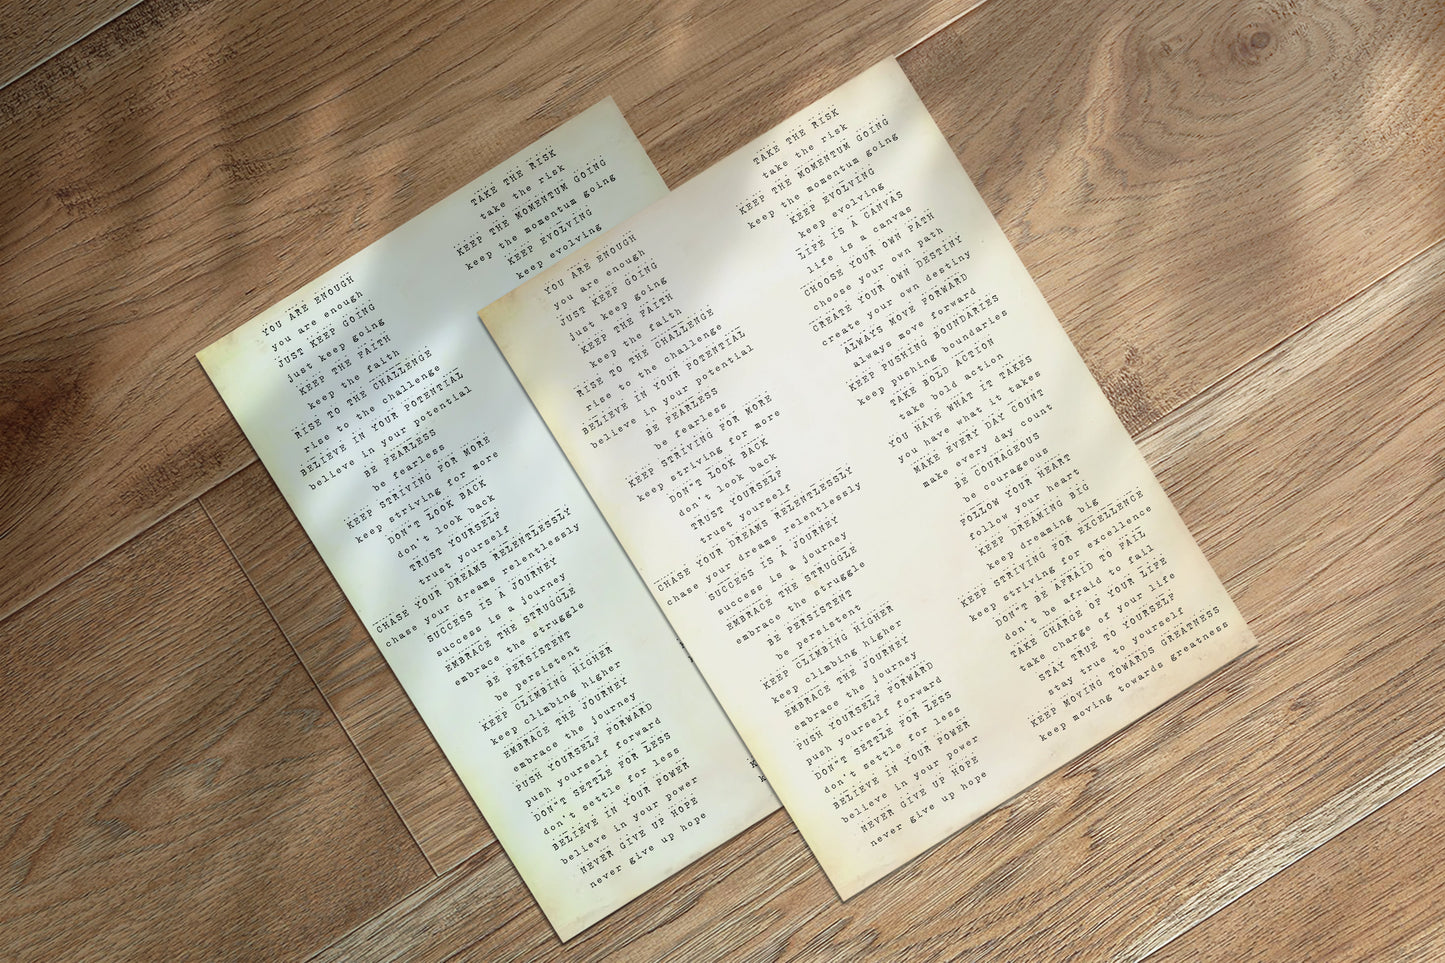 YOU ARE ENOUGH
you are enough
JUST KEEP GOING
just keep going
KEEP THE FAITH
keep the faith
RISE TO THE CHALLENGE
rise to the challenge
BELIEVE IN YOUR POTENTIAL
believe in your potential
BE FEARLESS
be fearless
KEEP STRIVING FOR MORE
keep striving for more
DON'T LOOK BACK
don't look back
TRUST YOURSELF
trust yourself
CHASE YOUR DREAMS RELENTLESSLY
chase your dreams relentlessly
SUCCESS IS A JOURNEY
success is a journey
EMBRACE THE STRUGGLE
embrace the struggle
BE PERSISTENT
be persistent
KEEP CLIMBING HIGHER
keep climbing higher
EMBRACE THE JOURNEY
embrace the journey
PUSH YOURSELF FORWARD
push yourself forward
DON'T SETTLE FOR LESS
don't settle for less
BELIEVE IN YOUR POWER
believe in your power
NEVER GIVE UP HOPE
never give up hope
TAKE THE RISK
take the risk
KEEP THE MOMENTUM GOING
keep the momentum going
KEEP EVOLVING
keep evolving
YOU ARE ENOUGH
you are enough
JUST KEEP GOING
just keep going
KEEP THE FAITH
keep the faith
RISE TO THE CHALLENGE
rise to the challenge
BELIEVE IN YOUR POTENTIAL
believe in your potential
BE FEARLESS
be fearless
KEEP STRIVING FOR MORE
keep striving for more
DON'T LOOK BACK
don't look back
TRUST YOURSELF
trust yourself
CHASE YOUR DREAMS RELENTLESSLY
chase your dreams relentlessly
SUCCESS IS A JOURNEY
success is a journey
EMBRACE THE STRUGGLE
embrace the struggle
BE PERSISTENT
be persistent
KEEP CLIMBING HIGHER
keep climbing higher
EMBRACE THE JOURNEY
embrace the journey
PUSH YOURSELF FORWARD
push yourself forward
DON'T SETTLE FOR LESS
don't settle for less
BELIEVE IN YOUR POWER
believe in your power
NEVER GIVE UP HOPE
never give up hope
TAKE THE RISK
take the risk
KEEP THE MOMENTUM GOING
keep the momentum going
KEEP EVOLVING
keep evolving
LIFE IS A CANVAS
life is a canvas
CHOOSE YOUR OWN PATH
choose your own path
CREATE YOUR OWN DESTINY
create your own destiny
ALWAYS MOVE FORWARD
always move forward
KEEP PUSHING BOUNDARIES
keep pushing boundaries
TAKE BOLD ACTION
take bold action
YOU HAVE WHAT IT TAKES
you have what it takes
MAKE EVERY DAY COUNT
make every day count
BE COURAGEOUS
be courageous
FOLLOW YOUR HEART
follow your heart
KEEP DREAMING BIG
keep dreaming big
KEEP STRIVING FOR EXCELLENCE
keep striving for excellence
DON'T BE AFRAID TO FAIL
don't be afraid to fail
TAKE CHARGE OF YOUR LIFE
take charge of your life
STAY TRUE TO YOURSELF
stay true to yourself
KEEP MOVING TOWARDS GREATNESS
keep moving towards greatness